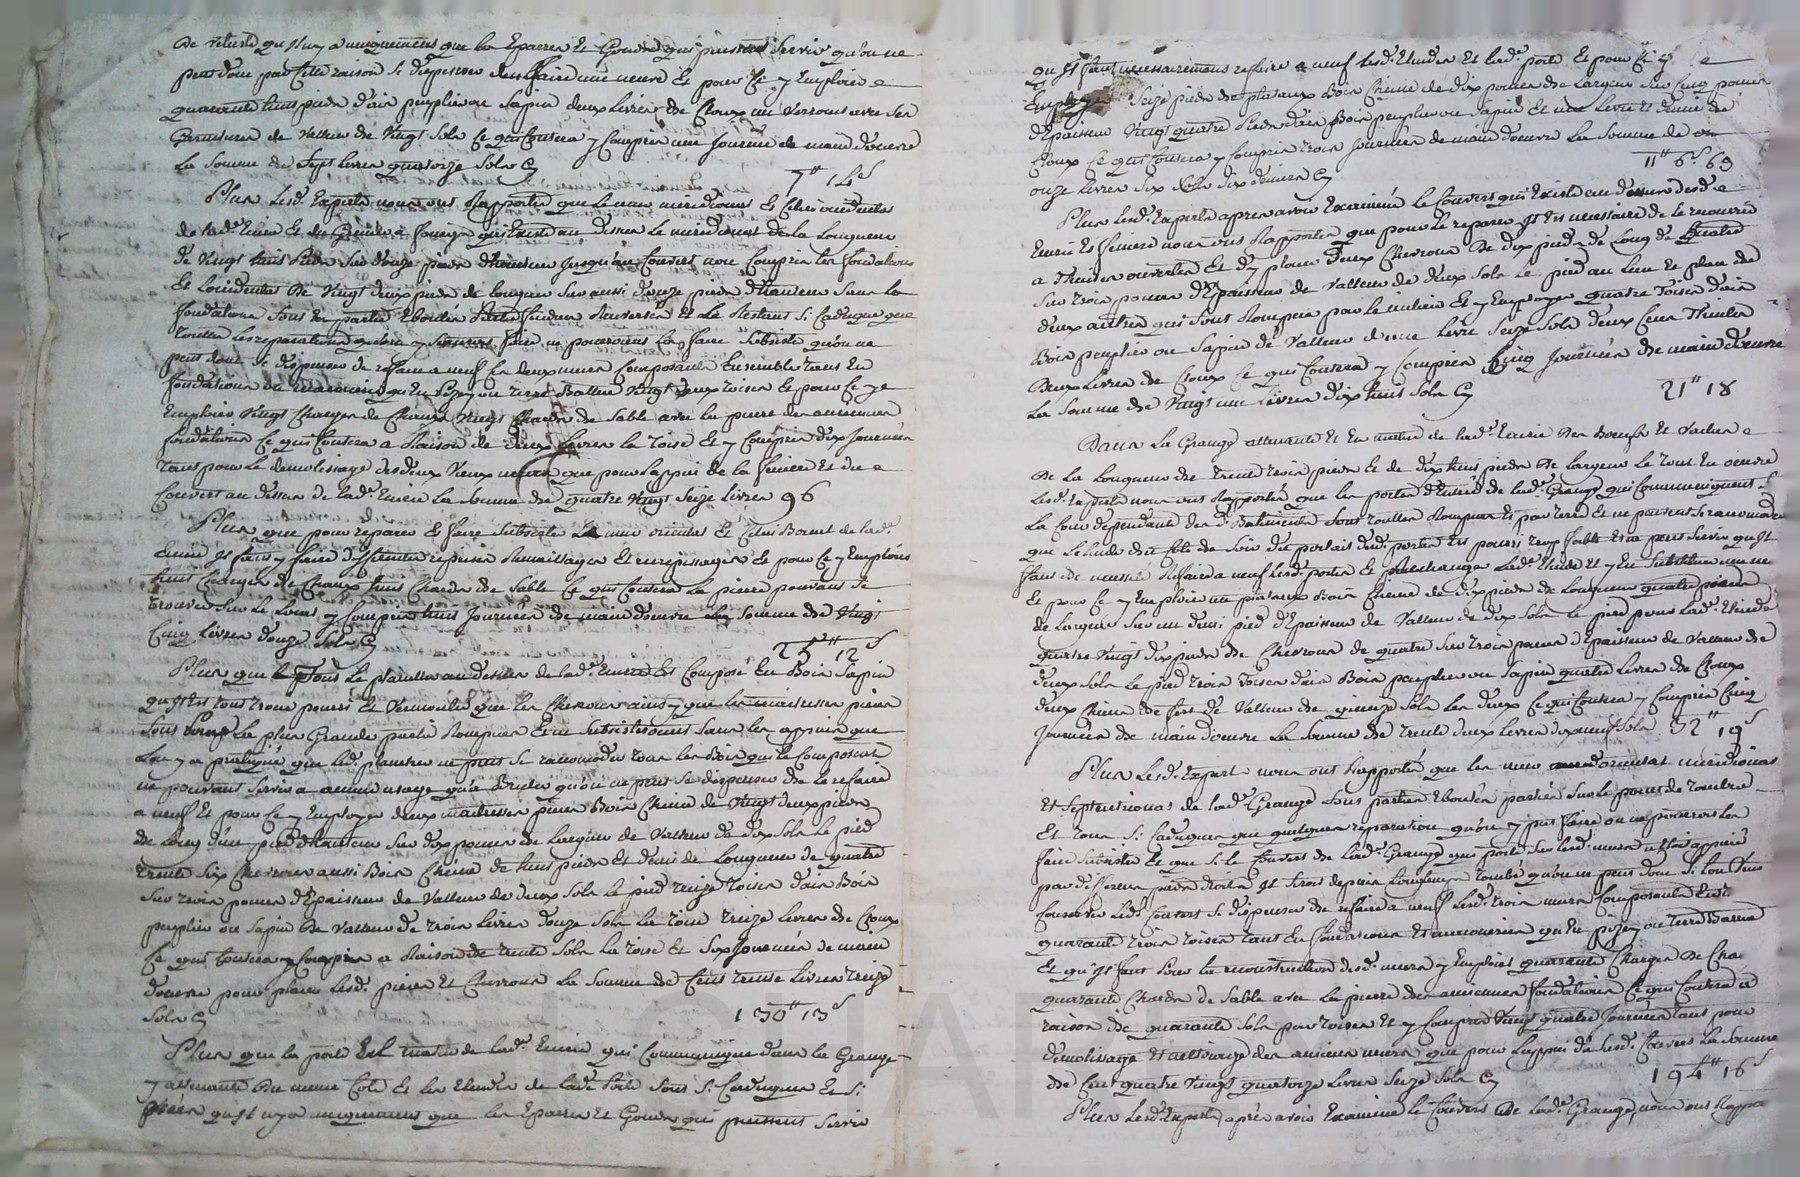 De vétusté qu'il n'y a uniquement que les Eparres et Gonds qui puissent servir qu'on ne
peut donc par cette raison se dispenser d'en faire une neuve et pour ce y Emploier
quarante huit pieds d'aix peuplier ou sapin deux Livres de Cloux un verrouil avec ses
Garnitures de valleur de vingt sols ce qui coutera y compris une journée de main d'œuvre
La somme de sept livres quatorze sols Cy
7# 14s
Plus Lesd. Experts nous ont Rapporté que Le mur méridional Et Celui occidental
de lad.e Ecurie Et du Grenier à fourage qui Existe au dessus Le méridional de la Longueur
de vingt huit pieds sur douze pieds d'hauteur jusqu'au Couvert non Compris les fondations
Et L'occidental de vingt deux pieds de longueur sur aussi douze pieds d'hauteur sans la
fondation sont en partie Eboulés fendus Renversés et le Restant si Caduque que
touttes les reparations qu'on y feroit faire ne pourroient les faire subsister qu'on ne
peut donc se dispenser de refaire a neuf ces deux murs Composants Ensemble tant En
fondations en maconnerie qu'En pizey ou terre Battue vingt deux toises Et pour ce y
Emploier vingt Charges de Chaux vingt Chards de sable avec les pierres des anciennes
fondations Ce qui Coutera a Raison de deux Livres la toise Et y Compris dix journées
tant pour le demolissage desdeux vieux murs que pour l'appui de la feniere Et du
Couvert au dessus de lad.e Ecurie La somme de quatre vingt seize livres 96
Plus que pour reparer Et faire subsister Le mur oriental Et Celui Bornet de lad.e
Ecurie Il faut y faire differentes reprises Remaillages Et recrepissages Et pour ce y Emploier
huit Charges de Chaux huit Chards de sable Ce qui Coutera La pierre pouvant se
trouver sur le Lieux y Compris huit journées de main d'œuvre La somme de vingt
Cinq Livres douze sols Cy
25# 12s
Plus que le plancher au dessus de lad.e Ecurie Est Composé En Bois Sapin
qu'Il est tout troué pourri Et vermoulu que les Chevrons ainsy que les maitresses pieces
sont pour la plus Grande partie Rompues Et ne subsisteroient sans les appuis que
Lon y a pratiqué que led. plancher ne peut se racomoder tous les Bois qui le Composent
ne pouvant servir a aucun usage qu'a Bruler qu'on ne peut se dispenser de le refaire
a neuf Et pour ce y Employer deux maitresses pieces Bois Chêne de vingt deux pieds
de Long d'un pied d'hauteur sur dix pouces de Largeur de valleur de dix sols Le pied
trente six Chevrons aussi Bois Chêne de huit pieds et demi de Longueur de quatre
sur trois pouces d'Epaisseur de valleur de deux sols le pied treize toises d'aix Bois
peuplier ou sapin de valleur de trois livres douze sols la toise treize livres de Cloux
Ce qui Coutera y Compris a Raison de trente sols la toise Et six journées de main
d'œuvre pour placer lesd. pieces Et Chevrons La somme de Cent trente livres treize
sols Cy
130# 13s
Plus que la porte au matin de lad.e Ecurie qui Communique dans la Grange
y attenante du meme Coté Et les Etendes de lad.e porte sont si Caduques Et si
Usées qu'Il n'y a uniquement que les Eparres Et Gonds qui puissent servir
qu'Il faut necessairement refaire a neuf lesd. Etendes Et lad.e porte Et pour ce y
Employer seize pieds de plataux Bois Chêne de dix pouces de Largeur sur Cinq pouces
d'Epaisseur vingt quatre pieds d'aix Bois peuplier ou sapin Et une livre et demie de
Cloux Ce qui Coutera y Compris trois journées de main d'œuvre La somme de
onze livres six sols six deniers Cy
11# 6s 6d
Plus lesd. Experts apres avoir Examiné Le Couvert qui Existe au dessus desd.
Ecurie Et feniere nous ont Rapporté que pour le reparer Il Est necessaire de le recouvrir
a thuiles ouvertes Et d'y placer deux Chevrons de dix pieds de Long de quatre
sur trois pouces d'Epaisseur de valleur de deux sols le pied au lieu Et place de
deux autres qui sont Rompus par le milieu Et y Employer quatre toises d'aix
Bois peuplier ou sapin de valleur d'une livre seize sols deux Cent thuiles
deux Livres de Cloux Ce qui Coutera y Compris Cinq journées de main d'œuvre
La somme de vingt une Livres dix huit sols Cy
21# 18
Dans La Grange attenante Et En matin de lad.e Ecurie des Bœufs Et vaches
de la Longueur de trente trois pieds Et de dix huit pieds de Largeur le tout En œuvre
Lesd. Experts nous ont Rapporté que les portes d'Entrée de lad.e Grange qui Communiquent
La Cour dependante des d. Batiments sont touttes Rompues Et par terre Et ne peuvent se racomoder
que L'Etende du Coté de soir du portail desd. portes Est pourri trop foible Et ne peut servir qu'Il
faut de necessité Refaire a neuf lesd. portes Et rechange lad.e Etende Et y En substituer une
Et pour ce y Emploier un plataux Bois Chêne de dix pieds de Longueur quatre pouces
de Largeur sur un demi pied d'Epaisseur de valleur de dix sols le pied pour lad.e Etende
quatre vingt dix pieds de Chevrons de quatre sur trois pouces d'Epaisseur de valleur de
deux sols le pied trois toises d'aix Bois peuplier ou sapin quatre livres de Cloux
deux Chêne de fert de valleur de quinze sols les deux Ce qui Coutera y Compris Cinq
journées de main d'œuvre La somme de trente deux Livres dix neuf sols 32# 19s
Plus Lesd. Experts nous ont Rapporté que les murs oriental méridional
Et septentrional de lad.e Grange sont partie Eboulés partie sur le point de tomber
Et tous si Caduques que quelques reparations qu'on y put faire on ne pourroit les
faire subsister Et que si le Couvert de lad.e Grange qui porte sur lesd. murs n'étoit appuié
par differens pieds droits Il seroit depuis Longtemps tombé qu'on ne peut donc si l'on veut
Conserver led. Couvert se dispenser de refaire a neuf lesd. trois murs Composants Entr
quarante trois toises tant En fondations Et maconnerie qu'En pizey ou terre Battue
Et qu'Il faut pour la reconstruction desd. murs y Emploier quarante Charges de Cha
quarante Chards de sable avec les pierres des anciennes fondations Ce qui Coutera a
raison de quarante sols par toises Et y Compris vingt quatre journées tant pour
démolissage Et attoirage des anciens murs que pour L'appui dudesd. Couvert La somme
de Cent quatre vingt quatorze livres seize sols Cy
194# 16s
Plus Lesd. Experts apres avoir Examiné le Couvert de lad.e Grange nous ont Rappo